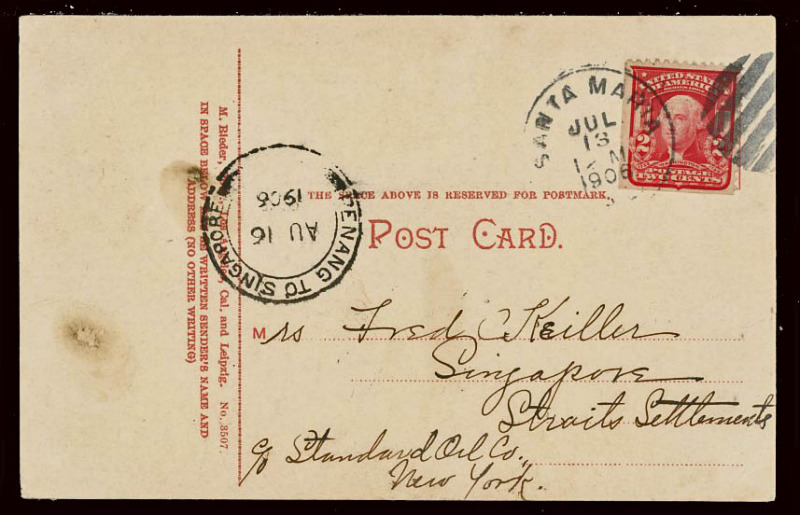 THE SPACE ABOVE IS RESERVED FOR POSTMARK.
POST CARD.
SANTA MARIA
JUL
13
M
1906
UNITED STATES
OF AMERICA
2 2
POSTAGE
TWO CENTS
PENANG TO SINGAPORE
AU 16
1906
Mrs Fred C Keiller
Singapore
Straits Settlements
c/o Standard Oil Co.,
New York.
M. Rieder, Cal. and Leipzig. No. 3507.
IN SPACE BELOW BE WRITTEN SENDER'S NAME AND
ADDRESS (NO OTHER WRITING)